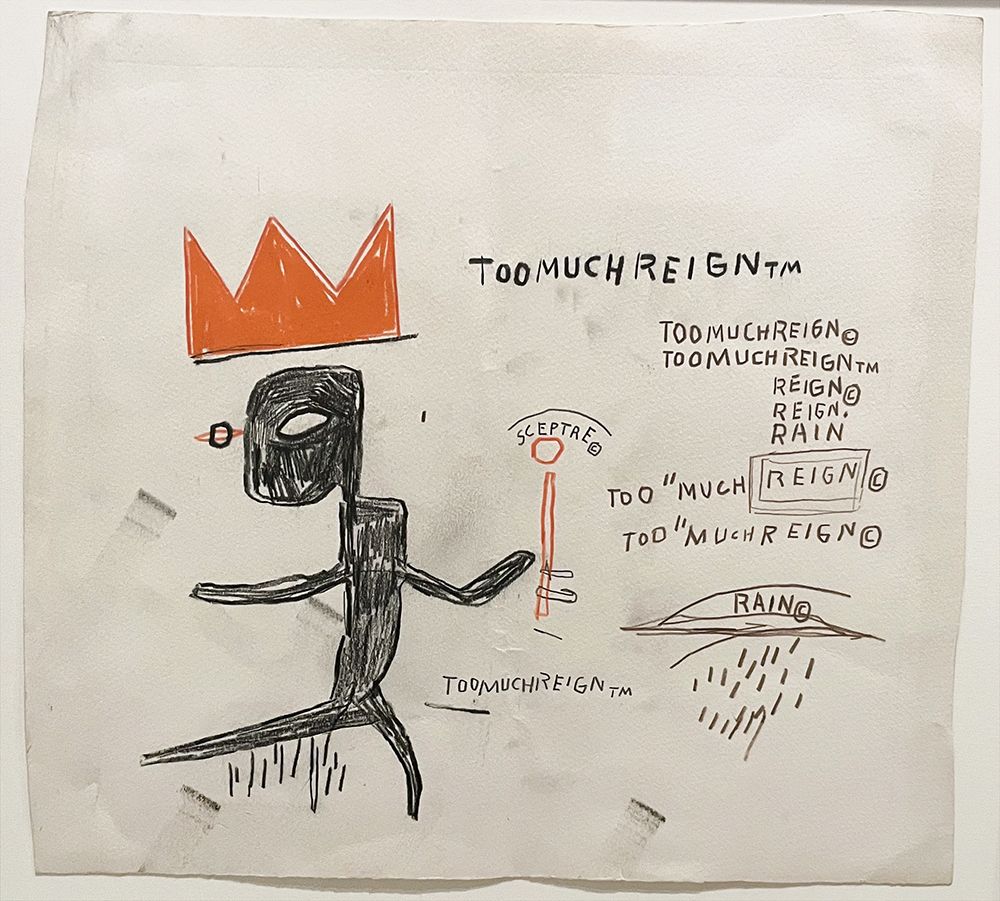 TOOMUCHREIGN™
TOOMUCHREIGN©
TOOMUCHREIGN™
REIGN©
REIGN.
RAIN
SCEPTRE©
TOO "MUCH REIGN ©
TOO "MUCHREIGN©
RAIN©
TOOMUCHREIGN™